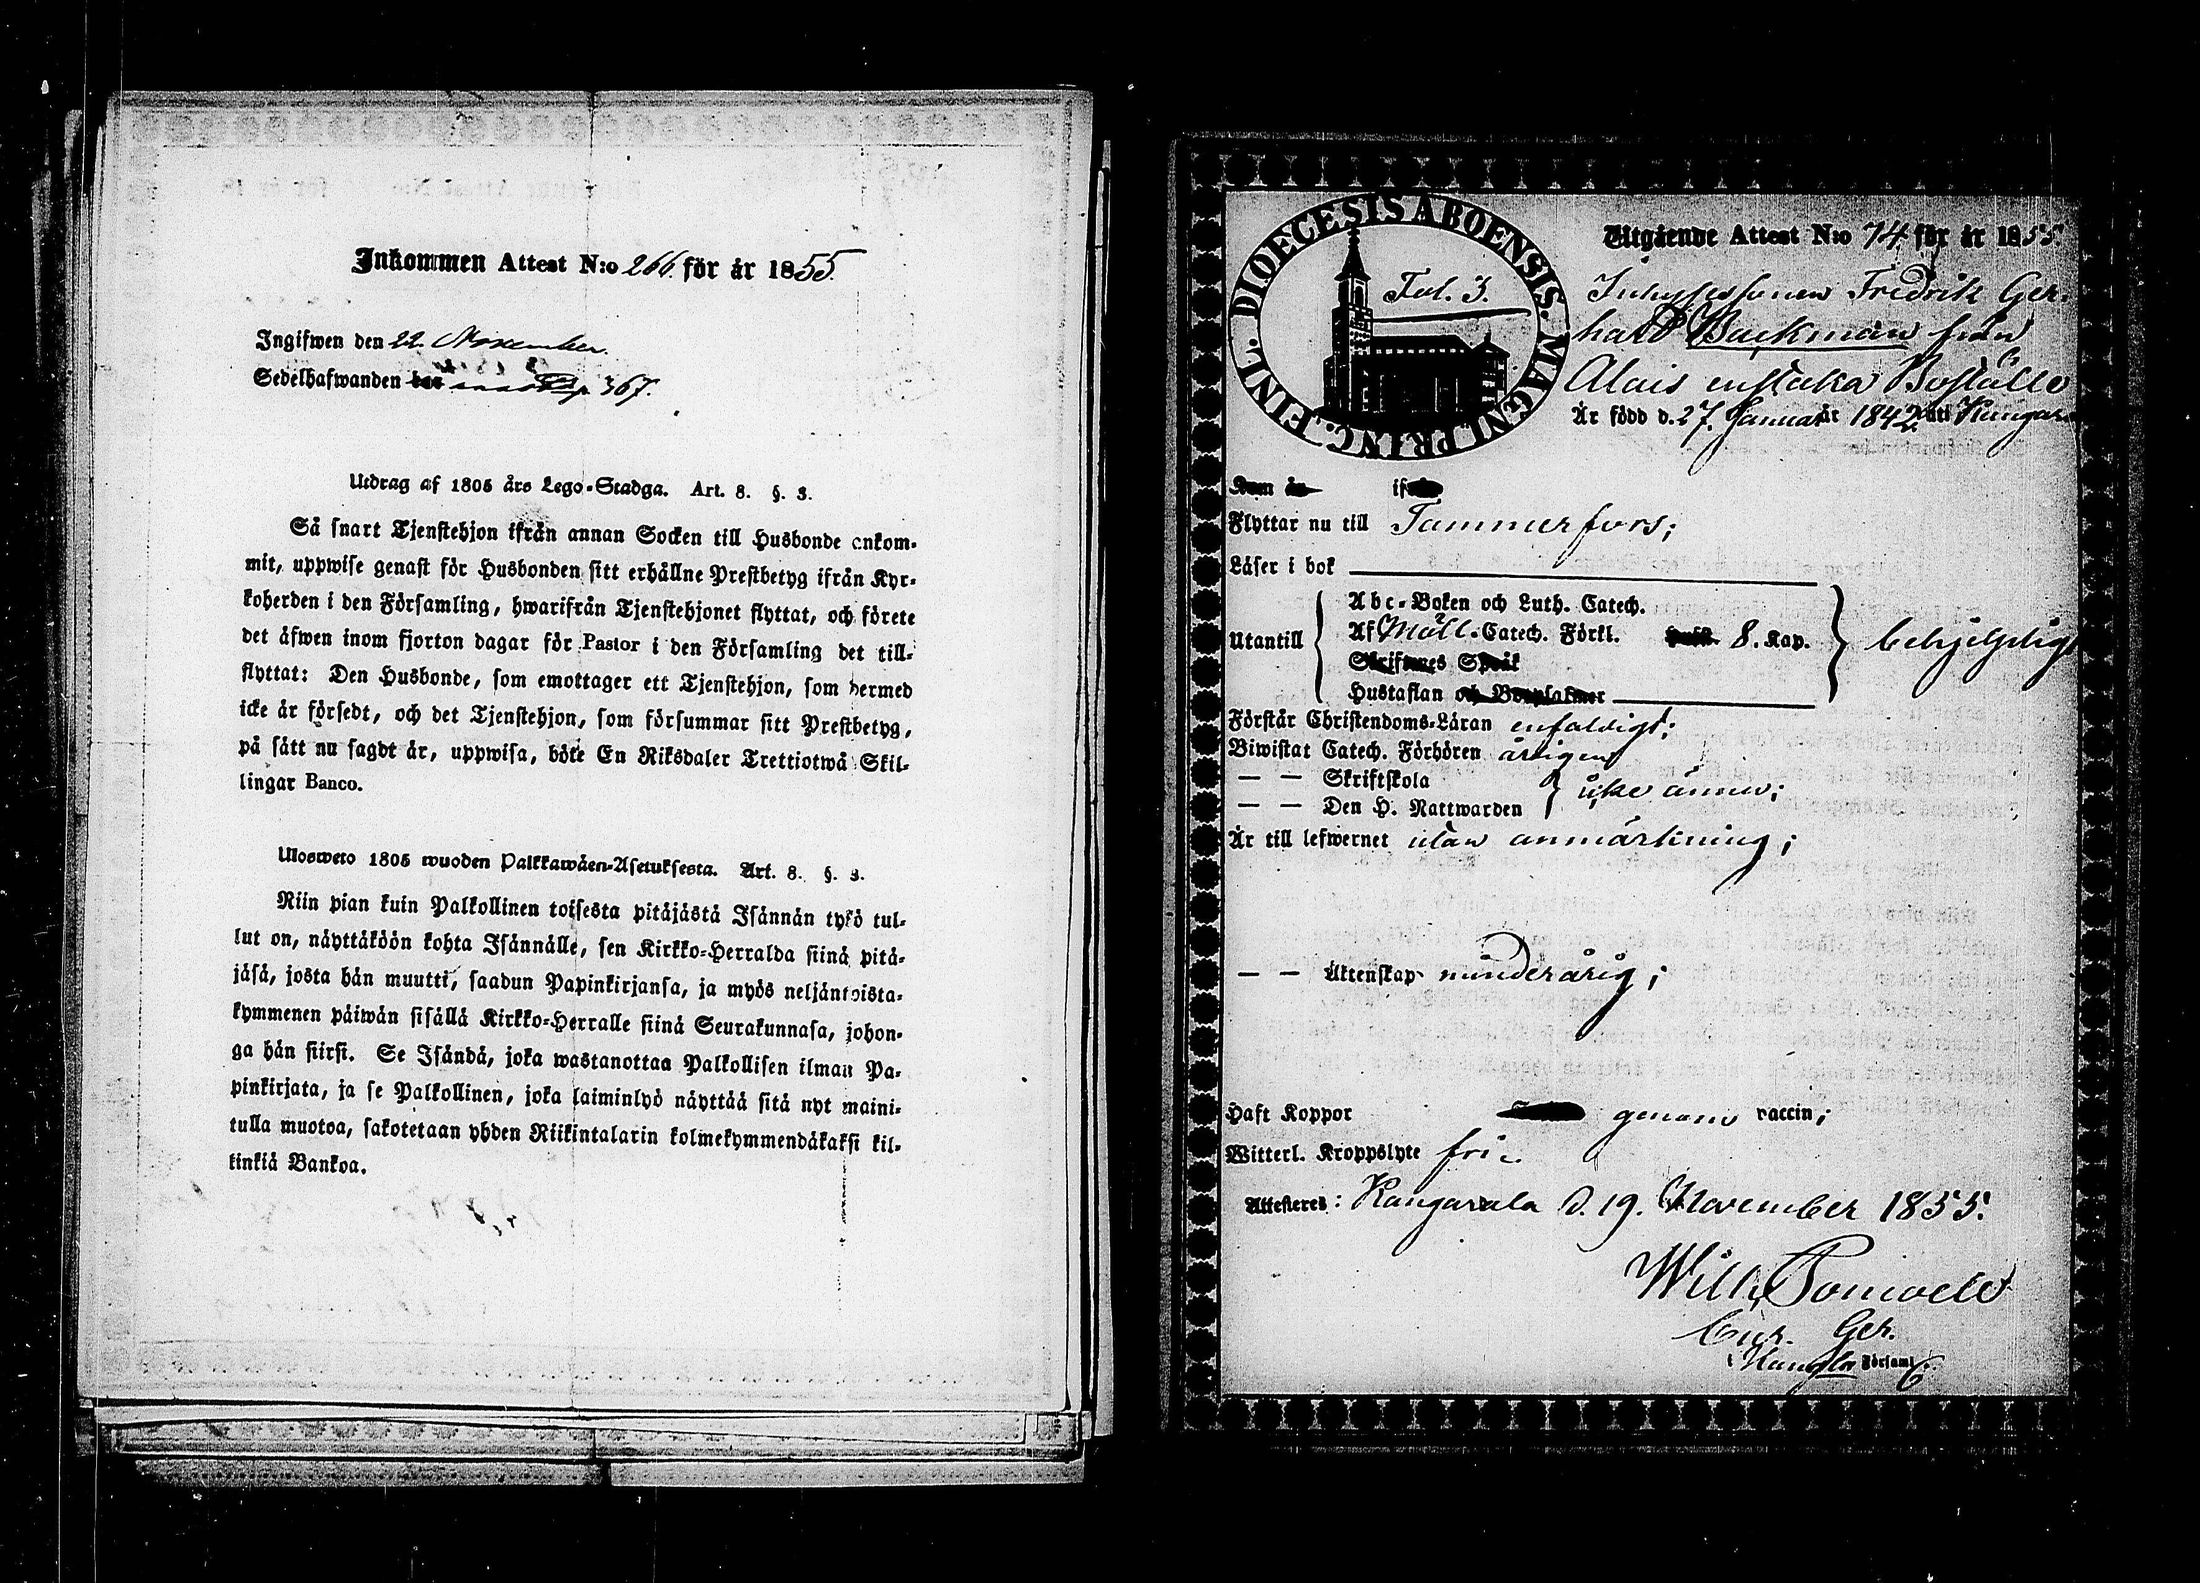 Inkommen Attest N:o 266 för år 1855.
Ingifwen den 22. November.
Sedelhafwanden 367.
Utdrag af 1805 års Lego-Stadga. Art. 8. §. 3.
Så snart Tjenstehjon ifrån annan Socken till Husbonde ankom-
mit, uppwise genast för Husbonden sitt erhållne Prestbetyg ifrån Kyr-
koherden i den Församling, hwarifrån Tjenstehjonet flyttat, och förete
det äfwen inom fjorton dagar för Pastor i den Församling det till-
flyttat: Den Husbonde, som emottager ett Tjenstehjon, som dermed
icke är försedt, och det Tjenstehjon, som försummar sitt Prestbetyg,
på sätt nu sagdt är, uppwisa, böte En Riksdaler Trettiotwå Skil-
lingar Banco.
Ulosweto 1805 wuoden Palkkawäen-Asetuksesta. Art. 8. §. 3.
Niin pian kuin Palkollinen toisesta pitäjästä Isännän tykö tul-
lut on, näyttäköön kohta Isännälle, sen Kirkko-Herralda siinä pitä-
jäsä, josta hän muutti, saadun Papinkirjansa, ja myös neljäntoista-
kymmenen päiwän sisällä Kirkko-Herralle siinä Seurakunnasa, johon-
ga hän siirsi. Se Isändä, joka wastanottaa Palkollisen ilman Pa-
pinkirjata, ja se Palkollinen, joka laiminlyö näyttää sitä nyt maini-
tulla muotoa, sakotetaan yhden Riikintalarin kolmekymmendäkaksi kil-
linkiä Bankoa.
DIOECESIS ABOENSIS. MAGNI PRINC. FINL.
Fol. 3.
Utgående Attest N:o 74 för år 1855.
Fredrik Ger-
hard Backman från
Alais enstaka Boställe
Är född d. 27. Januari år 1842 uti Kangas
Kom år ifrån
Flyttar nu till Tammerfors;
Läser i bok
Utantill
Abc-Boken och Luth. Catech.
Af Möll. Catech. Förkl. 8. Kap.
Skriftenes Språk
Hustaflan och Botpsalmer
behjelpligt
Förstår Christendoms-Läran enfaldigt;
Biwistat Catech. Förhören årligen
— — Skriftskola
— — Den H. Nattwarden
icke ännu;
Är till lefwernet utan anmärkning;
— — Äktenskap minderårig;
Haft Koppor genom vaccin;
Witterl. Kroppslyte fri.
Attesteres: Kangasala d. 19. November 1855.
Wilh.
Församl.